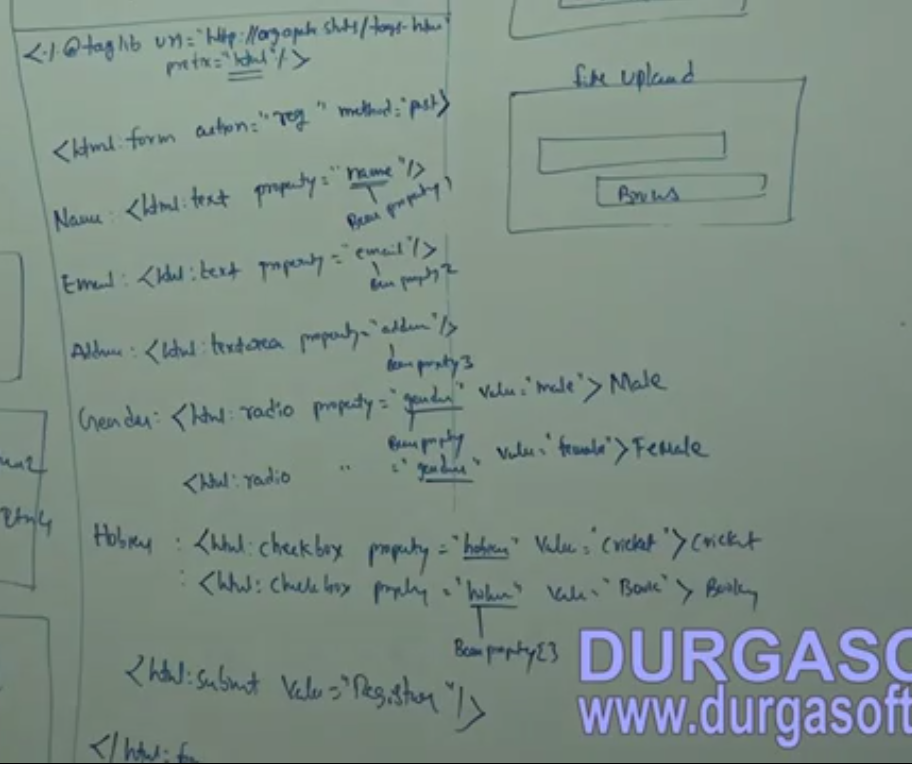 <·/·@taglib uri="http://org.apache.struts/tags-html"
prefix="html"/>
<html:form action="reg" method="post>
Name: <html:text property="name"/>
Bean property 1
Email: <html:text property="email"/>
Bean property 2
Address: <html:textarea property="address"/>
Bean property 3
Gender: <html:radio property="gender" value="male">Male
Bean property
<html:radio " ="gender" value="female">Female
Hobies : <html:checkbox property="hobies" value="cricket">Cricket
: <html:checkbox property="hobies" value=
Bean property[]
<html:submit value="Register"/>
</html:fo
file upload
Browse
DURGASO
www.durgasoft